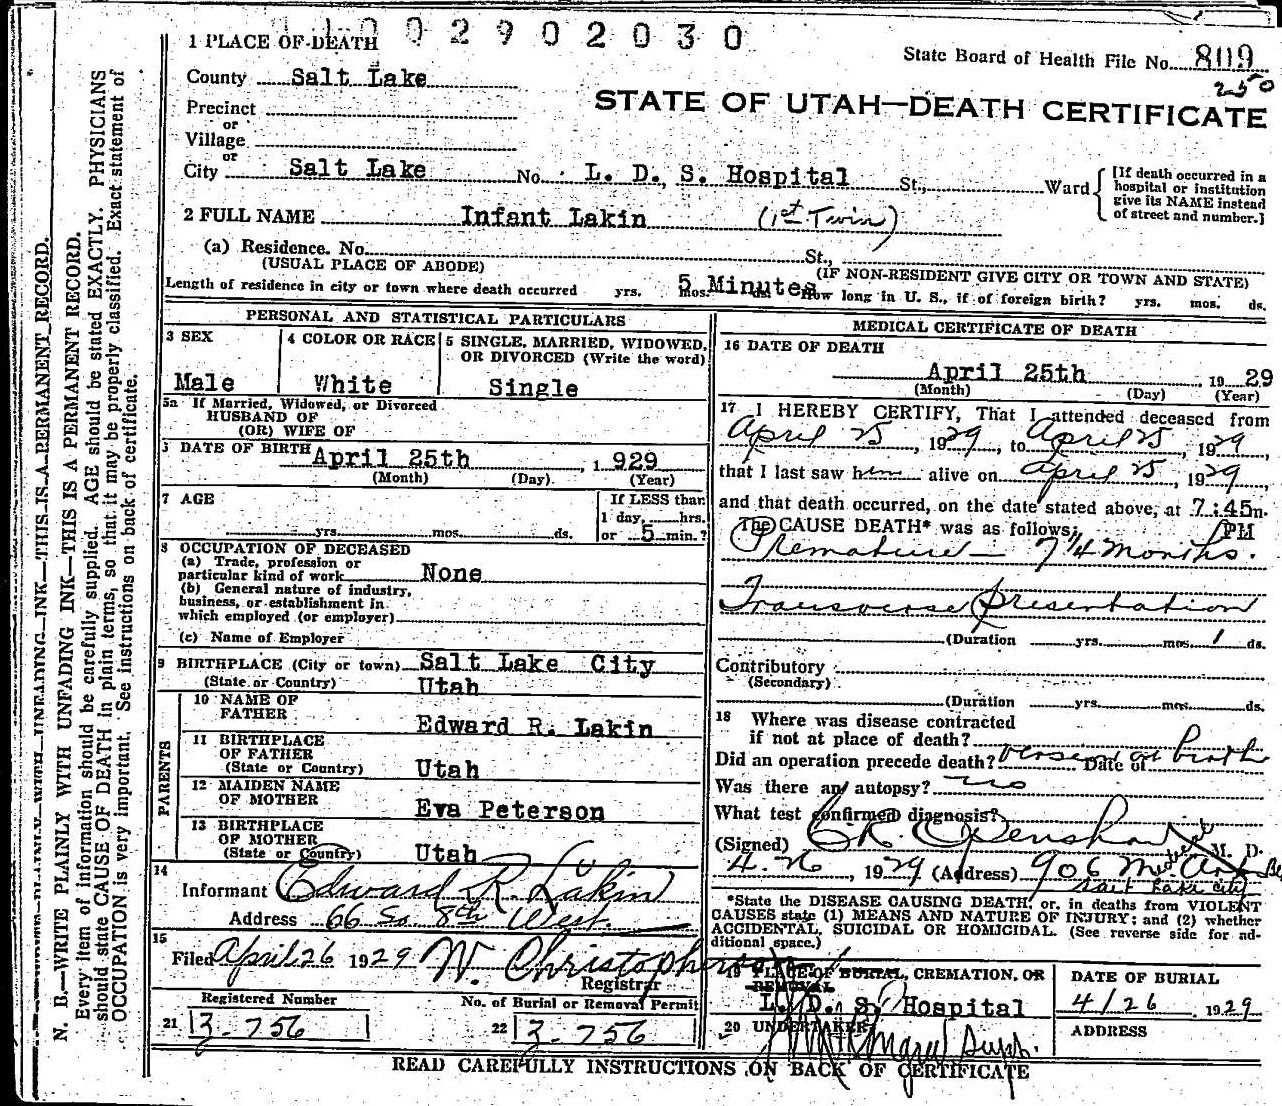 1 1 0 0 2 9 0 2 0 3 0
1 PLACE OF DEATH
State Board of Health File No. 809
250
County Salt Lake
STATE OF UTAH—DEATH CERTIFICATE
Precinct
or
Village
or
City Salt Lake No. L. D. S. Hospital St., Ward
[If death occurred in a
hospital or institution
give its NAME instead
of street and number.]
2 FULL NAME Infant Lakin (1st Twin)
(a) Residence. No. St.,
(USUAL PLACE OF ABODE) (IF NON-RESIDENT GIVE CITY OR TOWN AND STATE)
Length of residence in city or town where death occurred yrs. mos. ds. 5 Minutes How long in U. S., if of foreign birth? yrs. mos. ds.
PERSONAL AND STATISTICAL PARTICULARS
3 SEX
Male
4 COLOR OR RACE
White
5 SINGLE, MARRIED, WIDOWED,
OR DIVORCED (Write the word)
Single
5a If Married, Widowed, or Divorced
HUSBAND OF
(OR) WIFE OF
DATE OF BIRTH April 25th, 1 929
(Month) (Day) (Year)
7 AGE
yrs. mos. ds.
If LESS than
1 day, hrs.
or 5 min.?
8 OCCUPATION OF DECEASED
(a) Trade, profession or
particular kind of work None
(b) General nature of industry,
business, or establishment in
which employed (or employer)
(c) Name of Employer
9 BIRTHPLACE (City or town) Salt Lake City
(State or Country) Utah
PARENTS
10 NAME OF
FATHER Edward R. Lakin
11 BIRTHPLACE
OF FATHER
(State or Country) Utah
12 MAIDEN NAME
OF MOTHER Eva Peterson
13 BIRTHPLACE
OF MOTHER
(State or Country) Utah
14
Informant Edward R. Lakin
Address 66 So 8th West.
15
Filed April 26 1929 W. Christopherson
Registrar
Registered Number
21 3-756
No. of Burial or Removal Permit
22 3-756
MEDICAL CERTIFICATE OF DEATH
16 DATE OF DEATH
April 25th, 19 29
(Month) (Day) (Year)
17 I HEREBY CERTIFY, That I attended deceased from
April 25, 1929, to April 25, 1929,
that I last saw him alive on April 25, 1929,
and that death occurred, on the date stated above, at 7:45 m.
PM
The CAUSE DEATH* was as follows:
Premature — 7 1/4 months.
Transverse presentation
(Duration yrs. mos. 1 ds.
Contributory
(Secondary)
(Duration yrs. mos. ds.
18 Where was disease contracted
if not at place of death?
Did an operation precede death? version at birth Date of
Was there an autopsy? no
What test confirmed diagnosis?
(Signed) M. D.
4-26, 1929 (Address) 906 Medical Arts
Salt Lake City
*State the DISEASE CAUSING DEATH, or, in deaths from VIOLENT
CAUSES state (1) MEANS AND NATURE OF INJURY; and (2) whether
ACCIDENTAL, SUICIDAL OR HOMICIDAL. (See reverse side for ad-
ditional space.)
19 PLACE OF BURIAL, CREMATION, OR
REMOVAL
L. D. S. Hospital
DATE OF BURIAL
4/26, 1929
20 UNDERTAKER
ADDRESS
READ CAREFULLY INSTRUCTIONS ON BACK OF CERTIFICATE
N. B.—WRITE PLAINLY WITH UNFADING INK—THIS IS A PERMANENT RECORD.
Every item of information should be carefully supplied. AGE should be stated EXACTLY. PHYSICIANS
should state CAUSE OF DEATH in plain terms, so that it may be properly classified. Exact statement of
OCCUPATION is very important. See instructions on back of certificate.